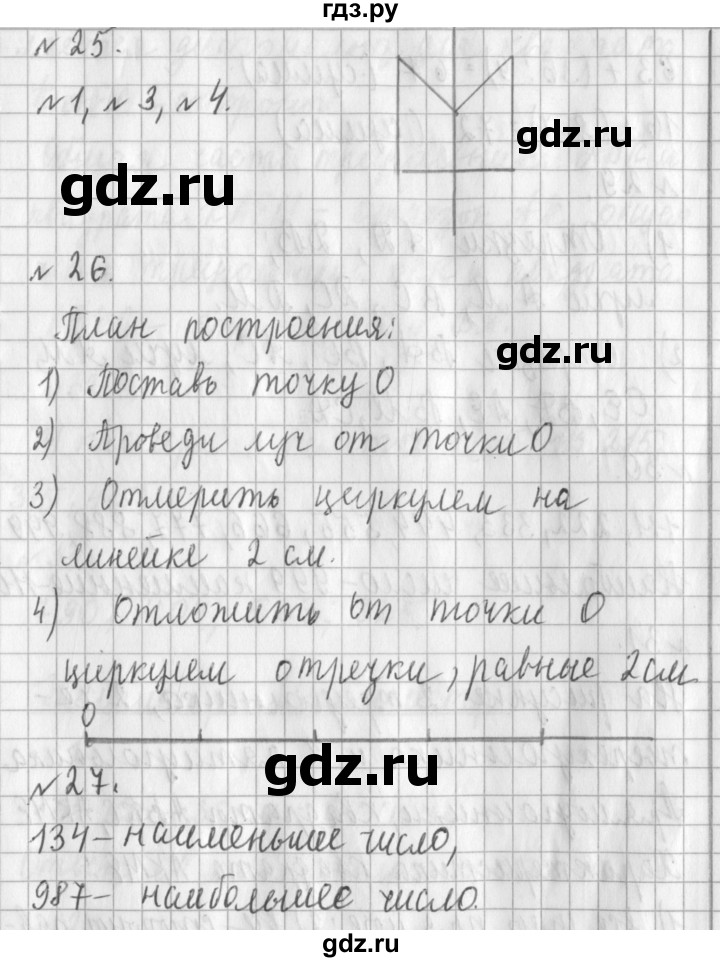 гдз.ру
№ 25.
№1, №3, №4.
gdz.ru
gdz.ru
№ 26.
План построения:
gdz.ru
1) Поставь точку O
2) Проведи луч от точки O
3) Отмерить циркулем на
линейке 2 см.
4) Отложить от точки O
циркулем отрезки, равные 2 см.
O
gdz.ru
№27.
134 – наименьшее число,
987 – наибольшее число.
gdz.ru